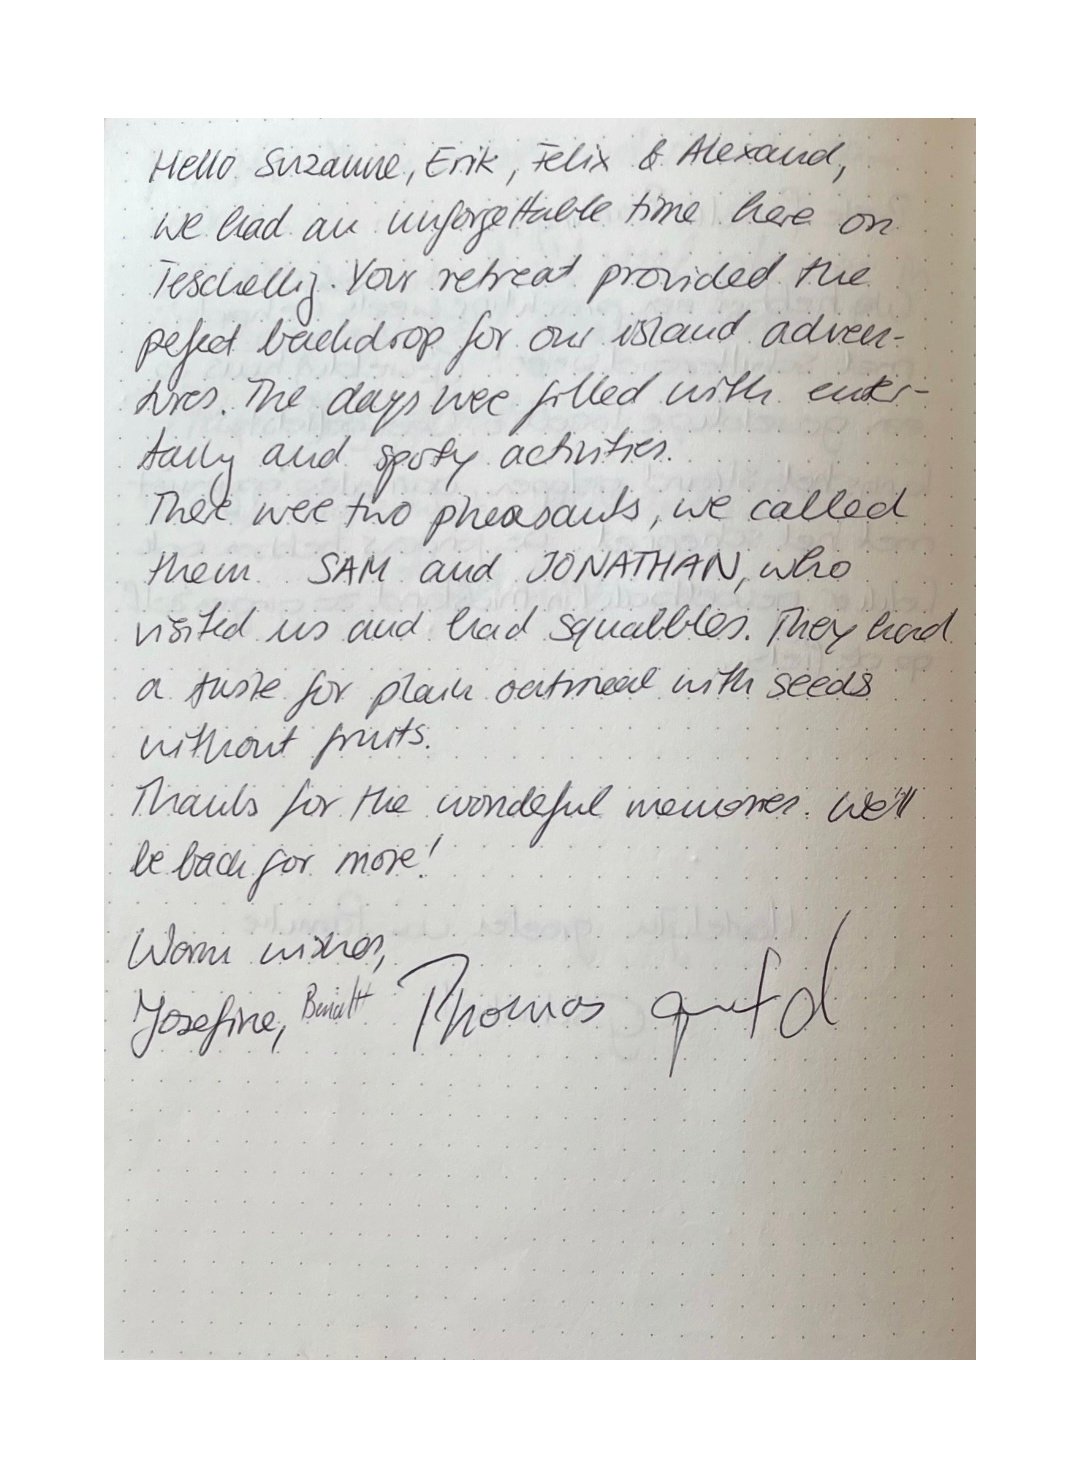 Hello Suzanne, Erik, Felix & Alexand,
we had an unforgettable time here on
Teschelliz. Your retreat provided the
pefect backdrop for our island adven-
tures. The days wee filled with enter-
taily and spoty activities.
There wee two pheasants, we called
them SAM and JONATHAN, who
visited us and had squabbles. They had
a taste for plain oatmeal with seeds
without fruits.
Thanks for the wondeful memories. We'll
be back for more!
Warm wishes,
Josefine, Thomas